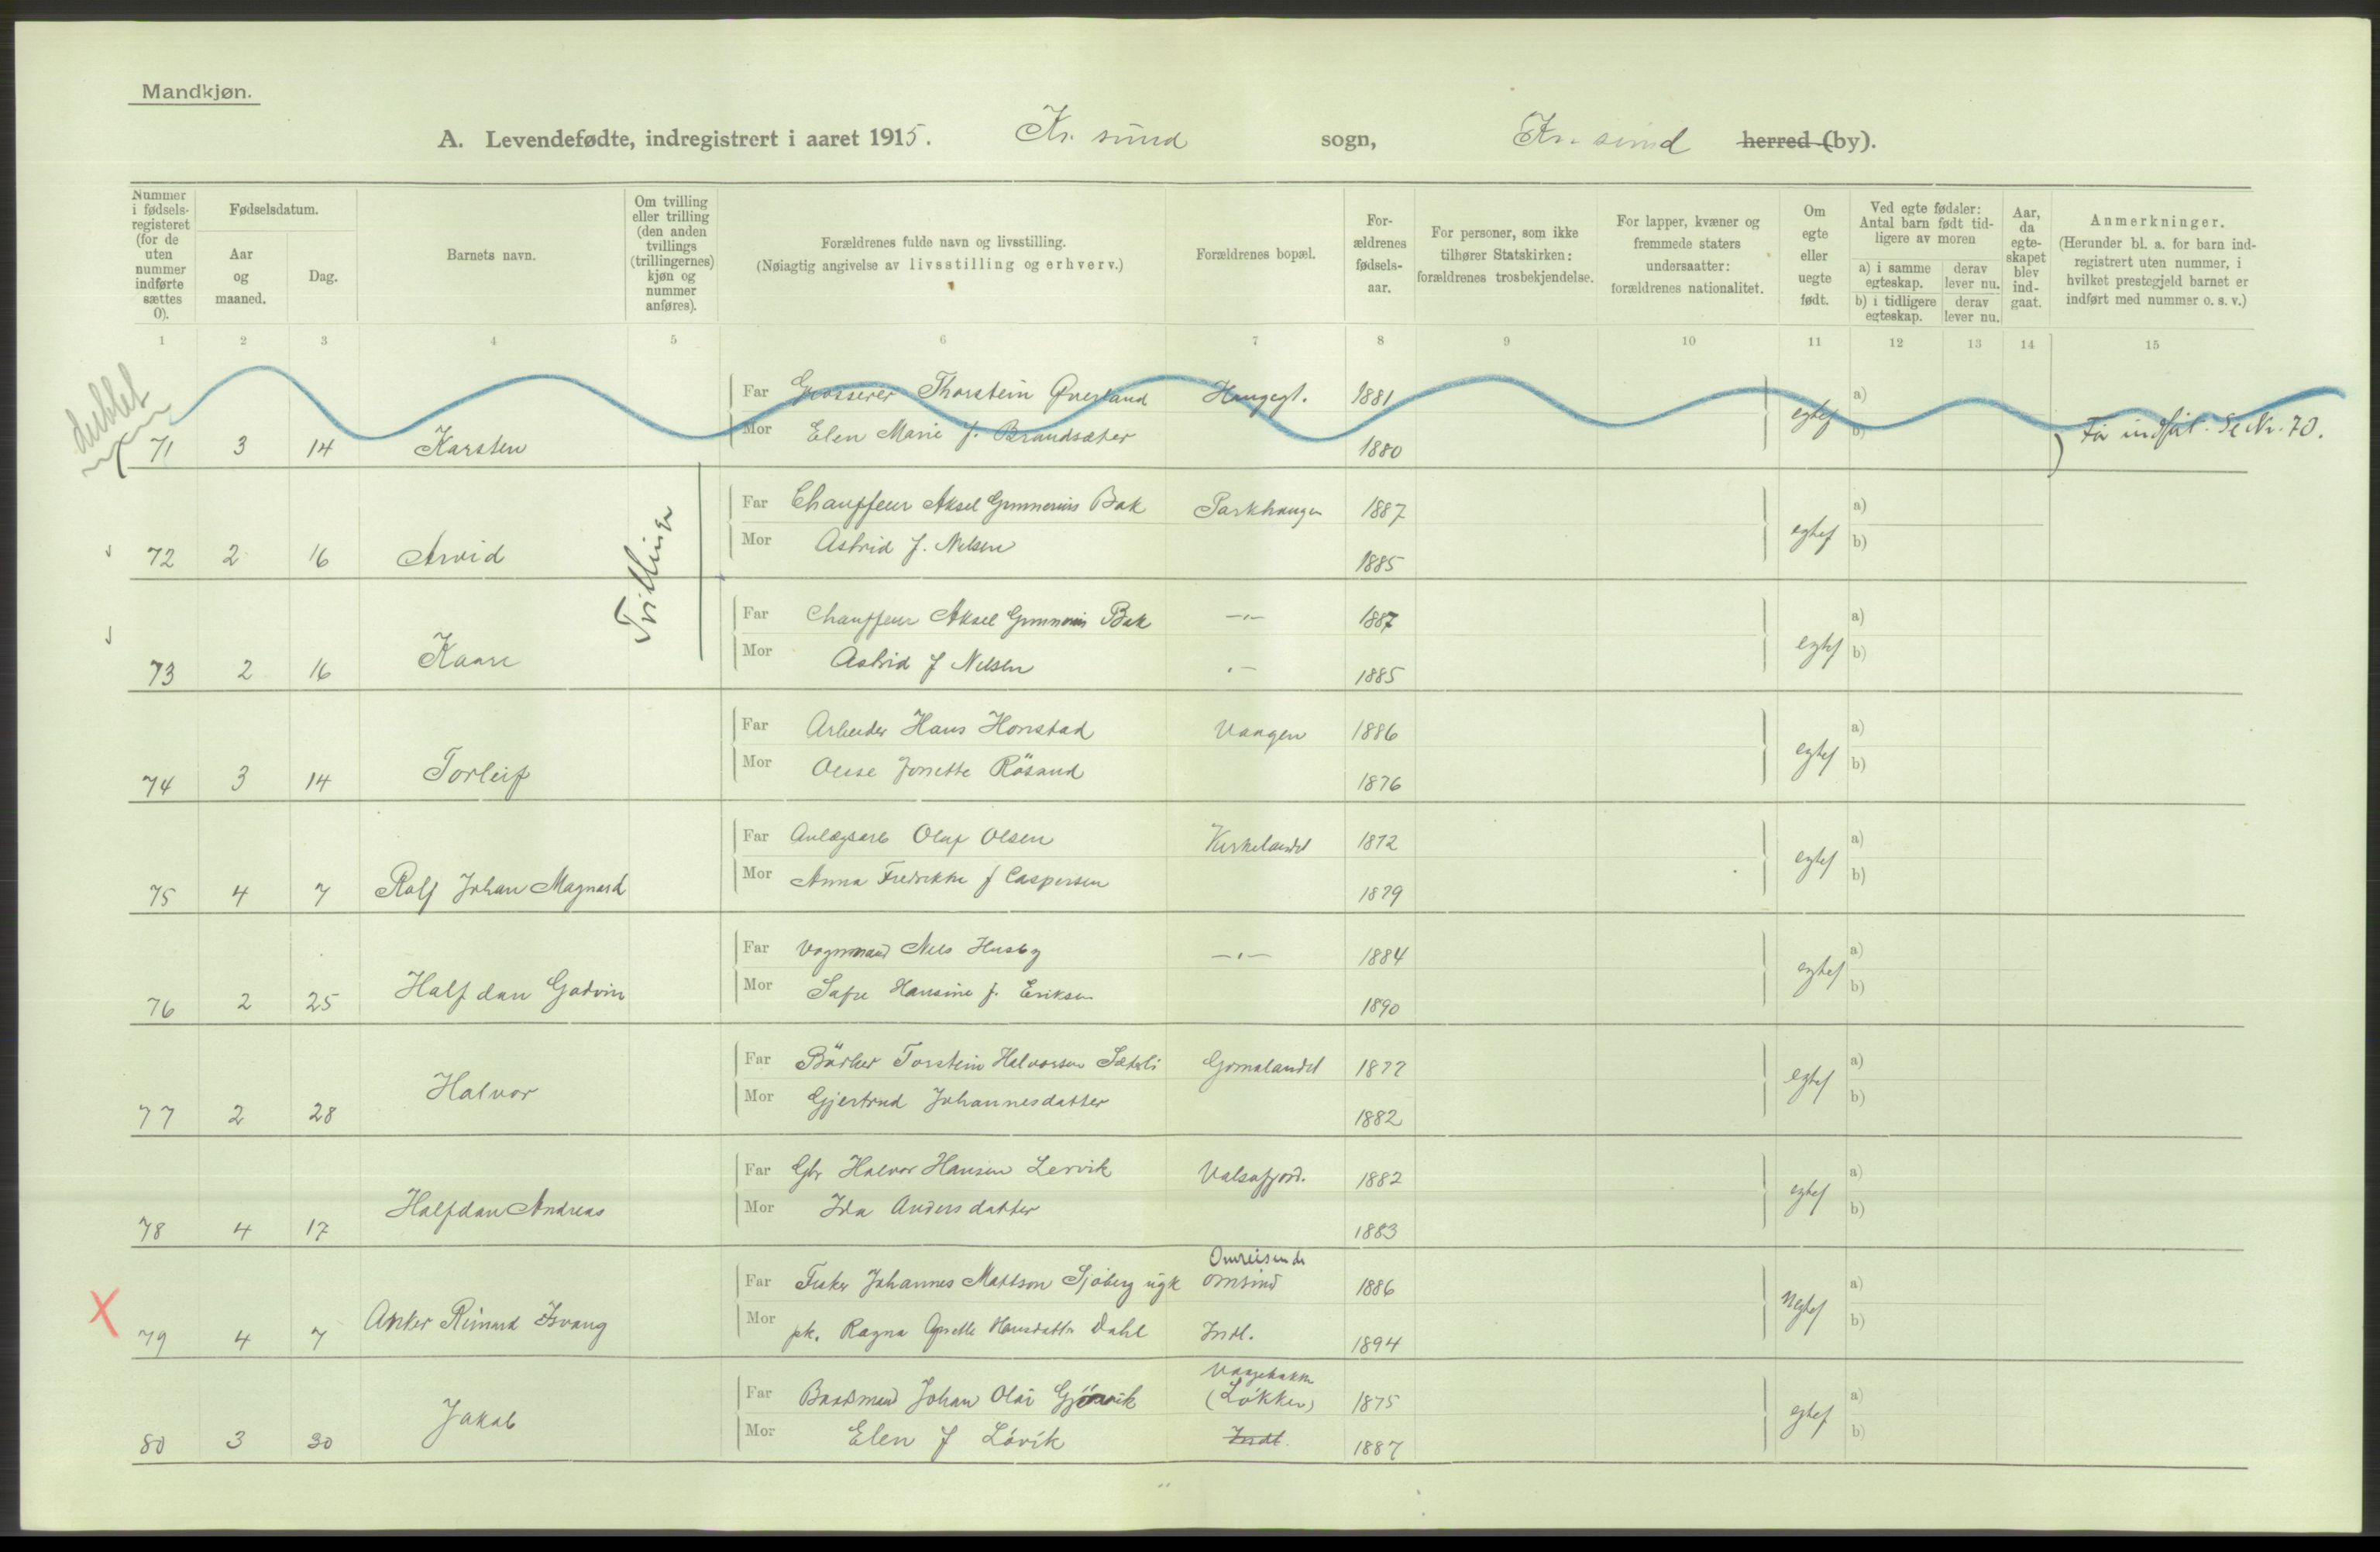 Mandkjøn.
A. Levendefødte, indregistrert i aaret 1915. Kr. sund sogn, Kr. sund herred (by).
Nummer i fødselsregisteret (for de uten nummer indførte sættes 0).
Fødselsdatum.
Aar og maaned.
Dag.
Barnets navn.
Om tvilling eller trilling (den anden tvillings (trillingernes) kjøn og nummer anføres).
Forældrenes fulde navn og livsstilling.
(Nøiagtig angivelse av livsstilling og erhverv.)
Forældrenes bopæl.
Forældrenes fødselsaar.
For personer, som ikke tilhører Statskirken: forældrenes trosbekjendelse.
For lapper, kvæner og fremmede staters undersaatter: forældrenes nationalitet.
Om egte eller uegte født.
Ved egte fødsler: Antal barn født tidligere av moren
a) i samme egteskap. derav lever nu.
b) i tidligere egteskap. derav lever nu.
Aar, da egteskapet blev indgaat.
Anmerkninger.
(Herunder bl. a. for barn indregistrert uten nummer, i hvilket prestegjeld barnet er indført med nummer o. s. v.)
1 2 3 4 5 6 7 8 9 10 11 12 13 14 15
dublet
Far Grosserer Thorstein Øverland Haugegt. 1881 a)
71 3 14 Karsten Mor Elen Marie f. Brandsæter 1880 egtef b) Før indført. Se Nr. 70.
Tvillinger
Far Chauffeur Aksel Gunnerius Bak Parkhaugen 1887 a)
72 2 16 Arvid Mor Astrid f. Nilsen 1885 egtef b)
Far Chauffeur Aksel Gunnerius Bak —"— 1887 a)
73 2 16 Kaare Mor Astrid f Nilsen 1885 egtef b)
Far Arbeider Hans Honstad Vaagen 1886 a)
74 3 14 Torleif Mor Jonette Røsand 1876 egtef b)
Far Anlægsarb Olaf Olsen Kirkelandet 1872 a)
75 4 7 Rolf Johan Magnard Mor Anna Fredrikke f Caspersen 1879 egtef b)
Far Vognmand Nils Husby —"— 1884 a)
76 2 25 Halfdan Godvin Mor Hansine f. Eriksen 1890 egtef b)
Far Torstein Halvorsen Sæterli Gomalandet 1877 a)
77 2 28 Halvor Mor Gjertrud Johannesdatter 1882 egtef b)
Far Gbr Halvor Hansen Lervik Valsøfjord. 1882 a)
78 4 17 Halfdan Andreas Mor Ida Andersdatter 1883 egtef b)
Omreisende
Far Fisker Johannes Mattson Sjøberg ugk 1886 a)
X 79 4 7 Mor pk. Ragna Hansdatter Dahl Indl. 1894 Uegtef b)
Far Baadsmand Johan Olai Gjørvik (Løkken) 1875 a)
80 3 30 Jakob Mor Elen f Løvik Indl. 1887 egtef b)